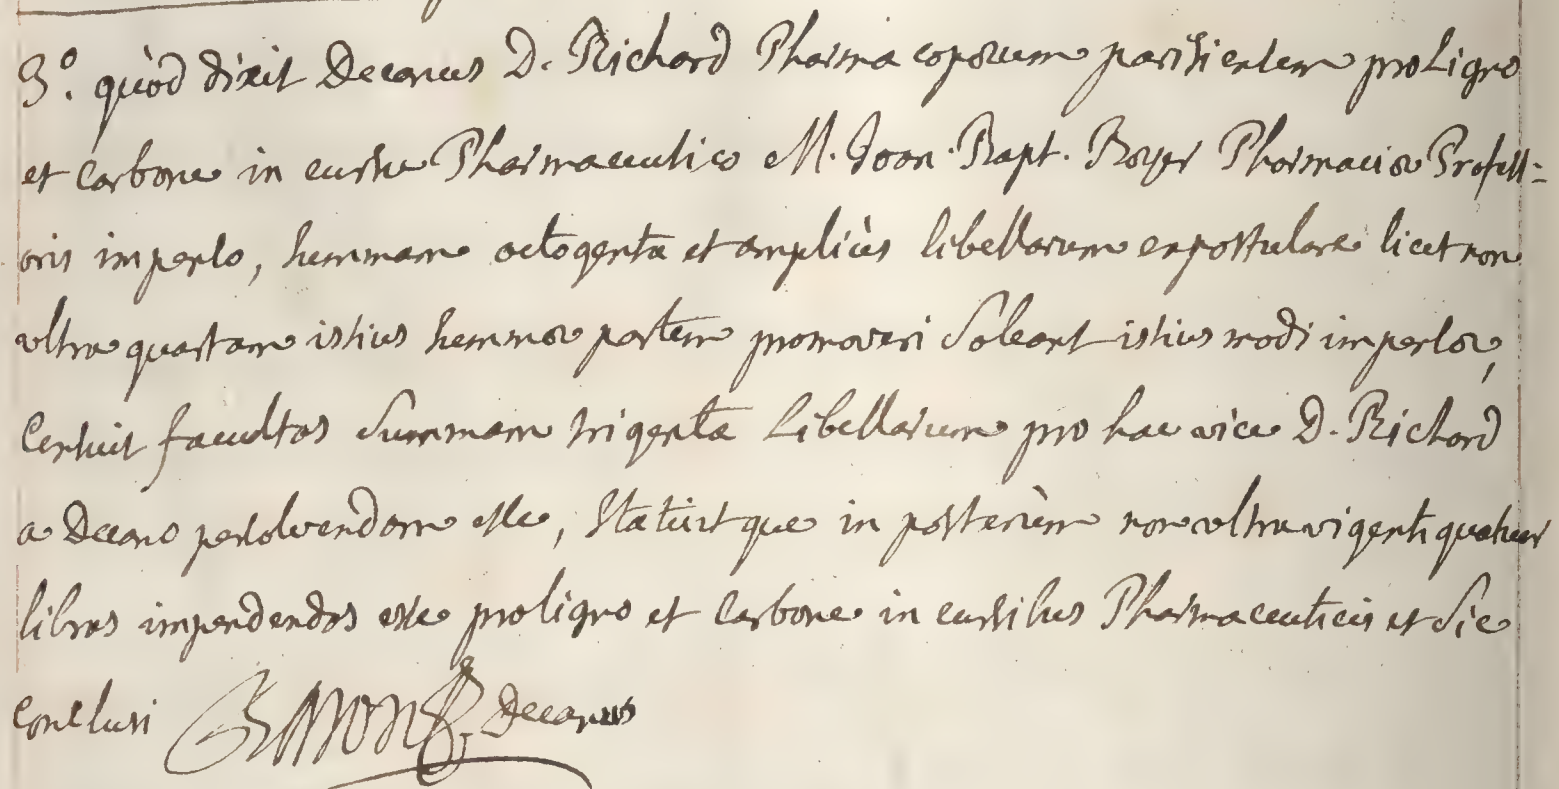 3.° quòd dixit Decanus D. Richard Pharmacopœum parisiensem pro ligno
et carbone in cursu Pharmaceutico M. Joan. Bapt. Boyer Pharmaciæ Profess=
oris impenso, summam octogenta et ampliùs libellarum expostulare licet non
ultra quartam istius summæ partem promoveri soleant istius modi impensæ,
Censuit facultas summam trigenta libellarum pro hac vice D. Richard
a Decano persolvendam esse, statuitque in posterùm non ultra vigenti quatuor
libras impendendas esse pro ligno et carbone in cursibus Pharmaceuticis et sic
conclusi Decanus